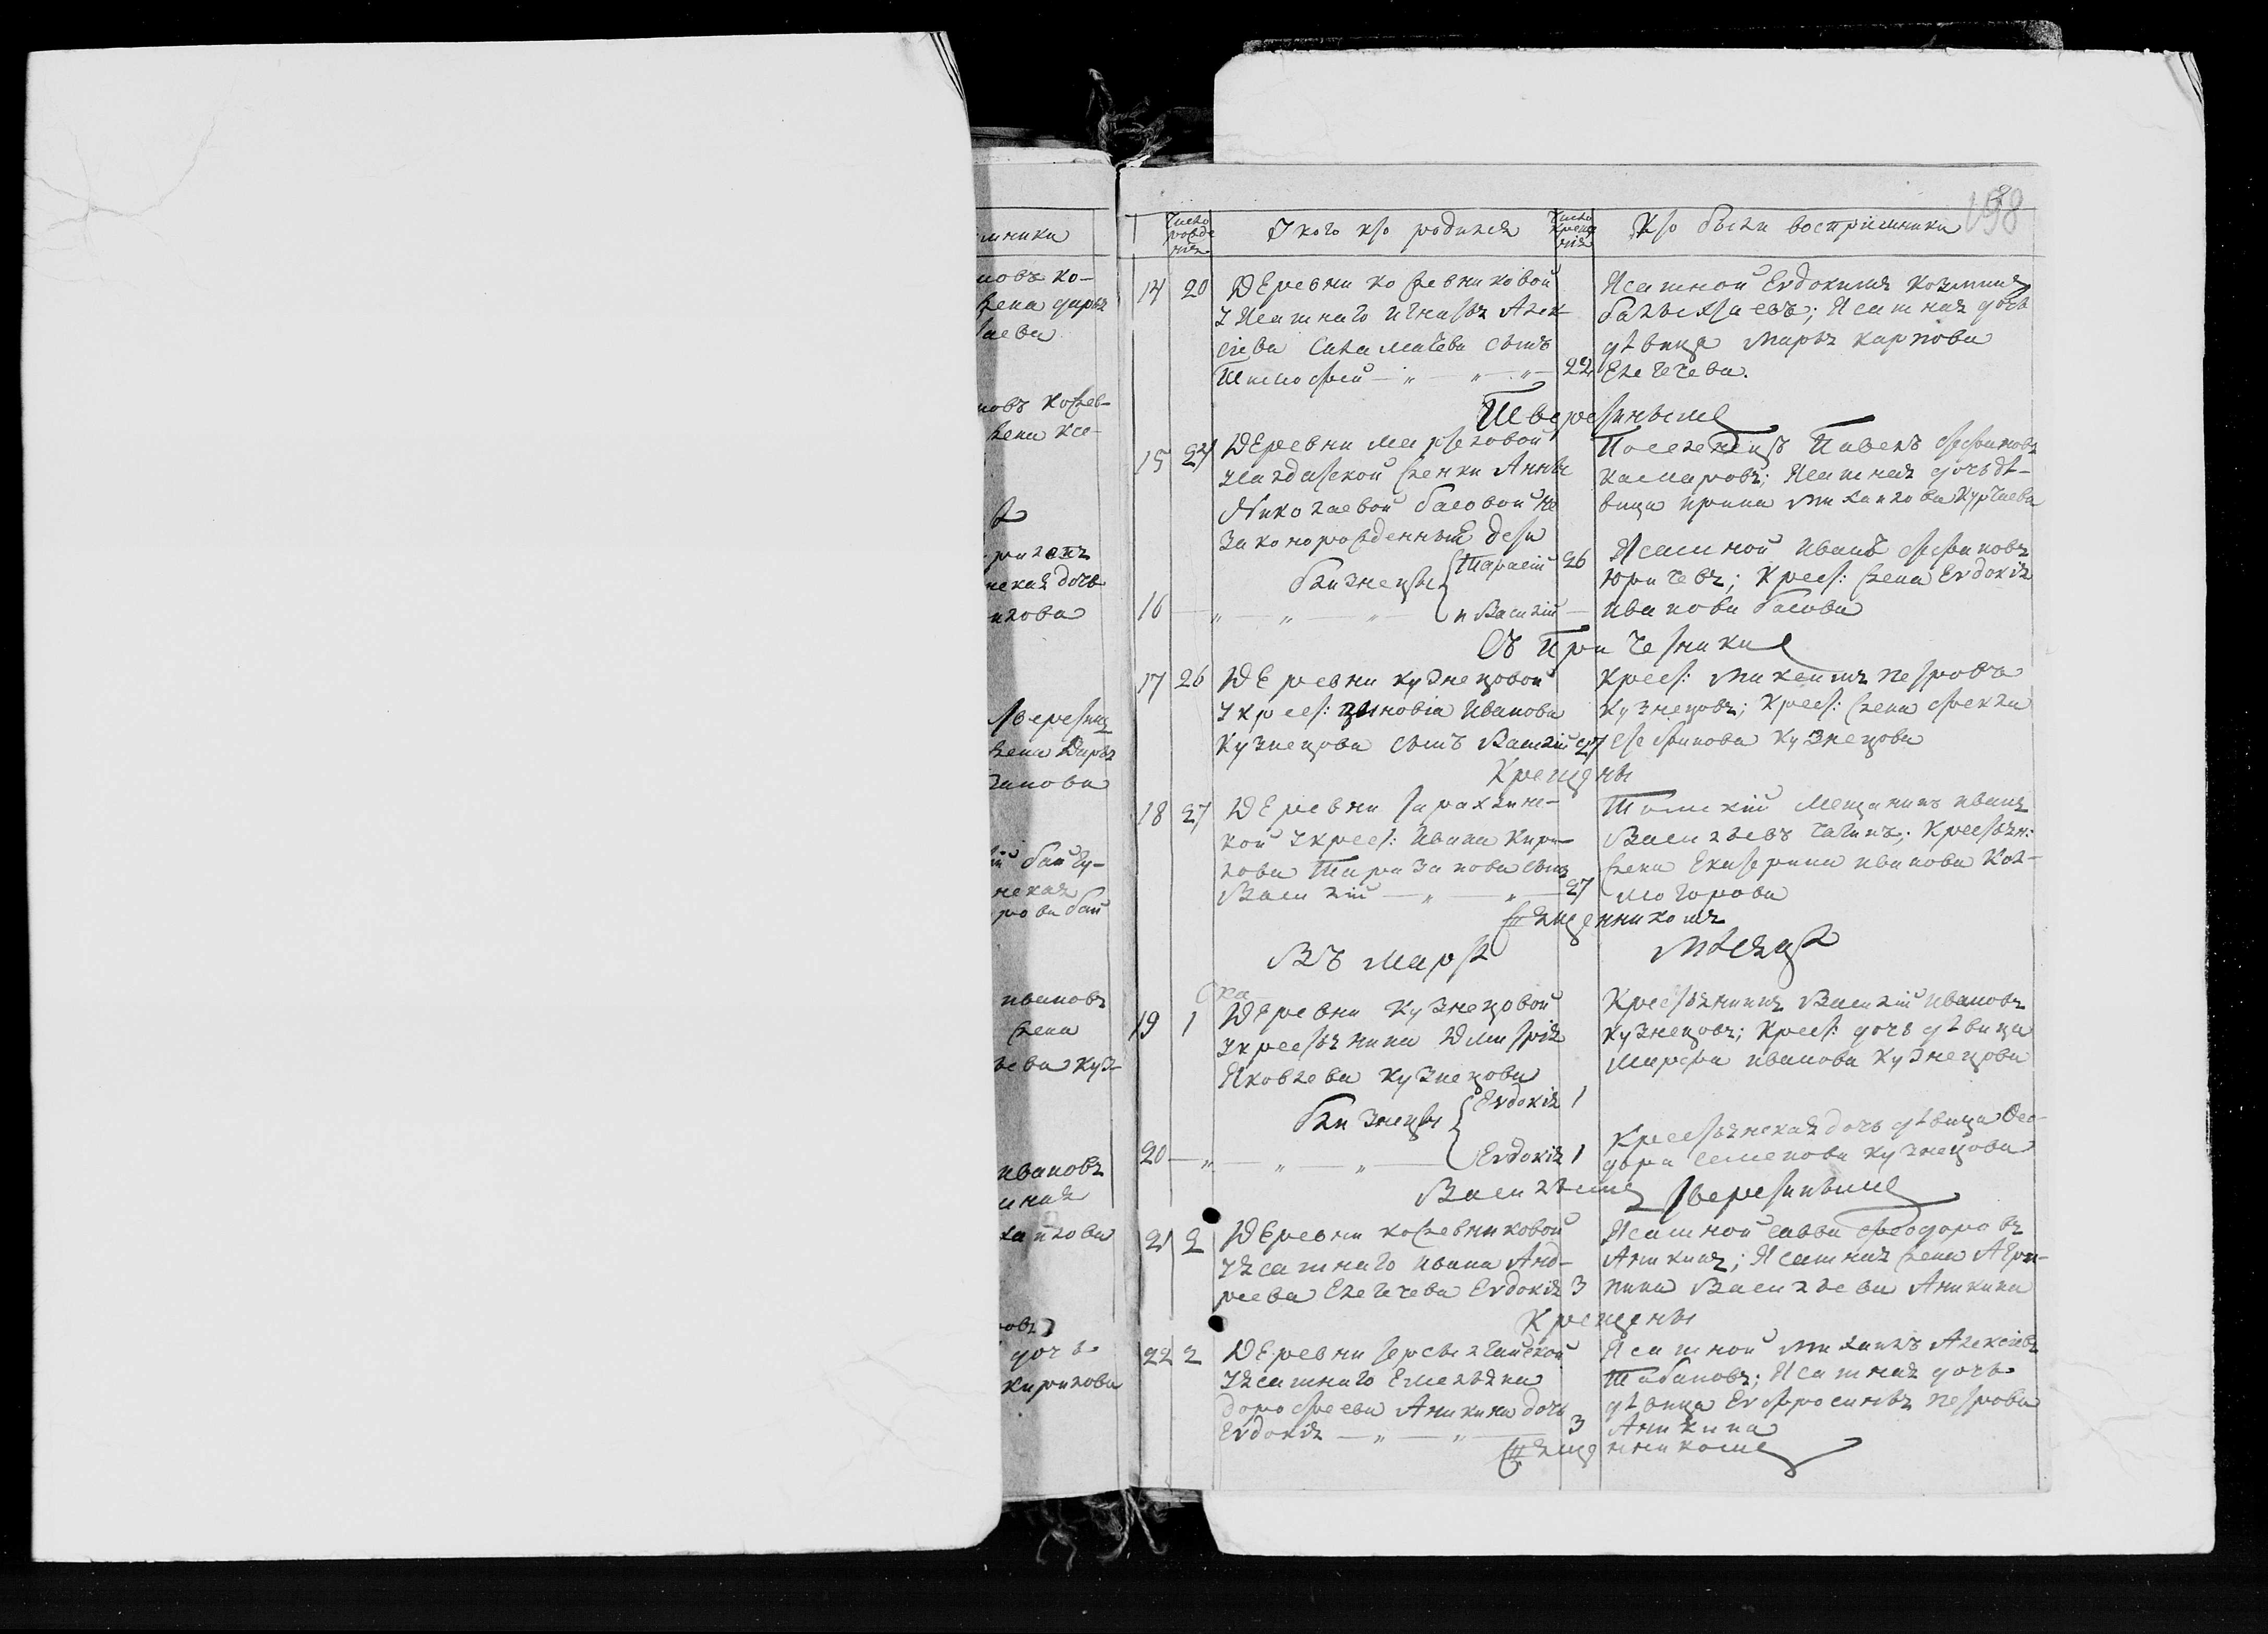 мники
новъ ко-
жена дарья
аева
новъ кожев-
жена ксе-
нская дочь
илова
тверетинъ
жена Дарья
занова
ій бай
нская
рова бай
ивановъ
жена
ьева куз-
ивановъ
хаилова
овъ
дочь
кирилова
198
Число рожде нія
У кого кто родился
Число креще нія
Кто были восприемники
14 20 Деревни кожевниковой
У Ясашнаго Игнатья Алек-
сіева Саламатова сынъ
Тимофей 22
Ясашной Евдокимъ козминъ
; Ясашная дочь
девица Марья карпова
Елегечева.
Тверетинымъ
15 24 Деревни
салдатской женки Анны
Николаевой басовой не
Законорожденный дети
близнецы Тарасій 26
16 и Василій
Поселенецъ Павелъ Стефановъ
Касмаровъ; Ясашная дочь де-
вица ирина Михаилова Куртаева
Ясашной Иванъ Стефановъ
Юричевъ; Крест: жена Евдокія
иванова басова
Съ Причетники
17 26 Деревни кузнецовой
У крест: зиновіа Иванова
Кузнецова сынъ Василій 27
Крест: Микита петровъ
кузнецовъ; Крест: жена фекла
стефанова кузнецова
Крещены
18 27 Деревни
кой У крест: Ивана Кири-
лова Тарзанова сынъ
Василій 27
Томскій мещанинъ иванъ
Васильевъ чагинъ; Крестьян:
жена Екатерина иванова Кол-
могорова
Священникомъ
Въ мартѣ
Мѣсяцѣ
19 1 Деревни Кузнецовой
У крестьянина Дмитрія
Яковлева кузнецова
близнецы Евдокія 1
20 Евдокія 1
Крестьянинъ Василій ивановъ
кузнецовъ; Крест: дочь девица
Марфа иванова Кузнецова
Крестьянская дочь девица Фео-
дора семенова кузнецова
Васильемъ тверетинымъ
21 2 Деревни кожевниковой
У ясашнаго ивана Анд-
реева Елегечева Евдокія 3
Ясашной савва феодоровъ
Аникинъ; Ясашная жена Агри-
пина Васильева Аникина
Крещены
22 2 Деревни
У ясашнаго Емельяна
дорофеева Аникина дочь
Евдокія 3
Ясашной Михаилъ Алексіевъ
Табановъ; Ясашная дочь
девица Евфросинья петрова
Аникина
Священникомъ